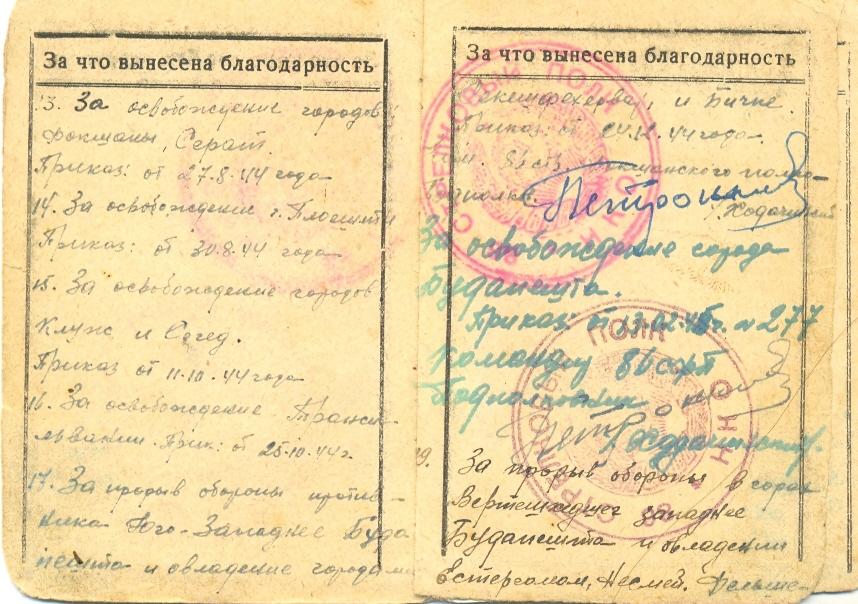 За что вынесена благодарность
13. За освобождение городов
Фокшаны, Серат.
Приказ: от 27.8.44 года
14. За освобождение г. Плоешти
Приказ: от 30.8.44 года
15. За освобождение городов
Клуж и Сегед.
Приказ от 11.10.44 года
16. За освобождение Транси-
львании. Прик: от 25.10.44 г.
17. За прорыв обороны против-
ника Юго-Западнее Буда
пешта и овладение городами
За что вынесена благодарность
и Бичке.
Приказ: от 24.12.44 года
Петр
Ходачинский
За освобождение города
Будапешта.
Приказ: от 13.02.45г. № 277
Командир 86 гсрп
Подполковник
Петр Ходачинский
19. За прорыв обороны в горах
Вертешхедьшег западнее
Будапешта и овладении
Естергомом, Несмей, Фельше-
СТРЕЛКОВЫЙ ПОЛК
ПОЛК